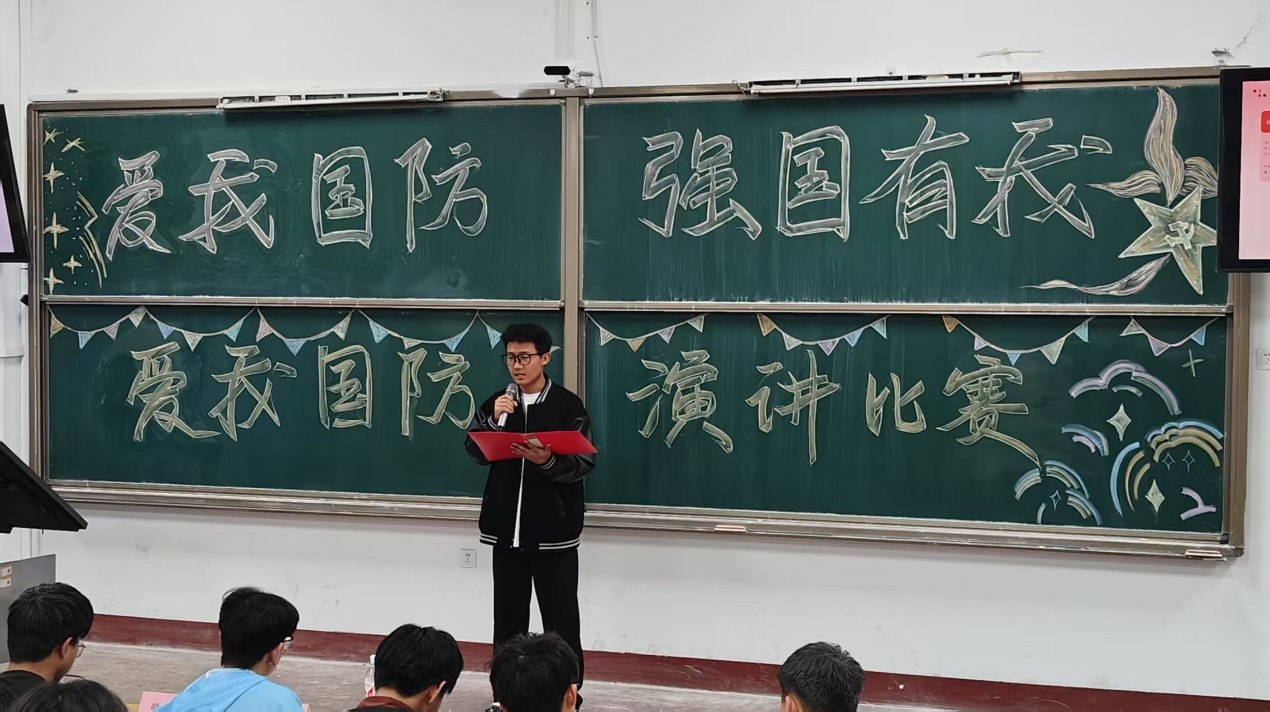 爱我国防 强国有我
爱我国防 演讲比赛